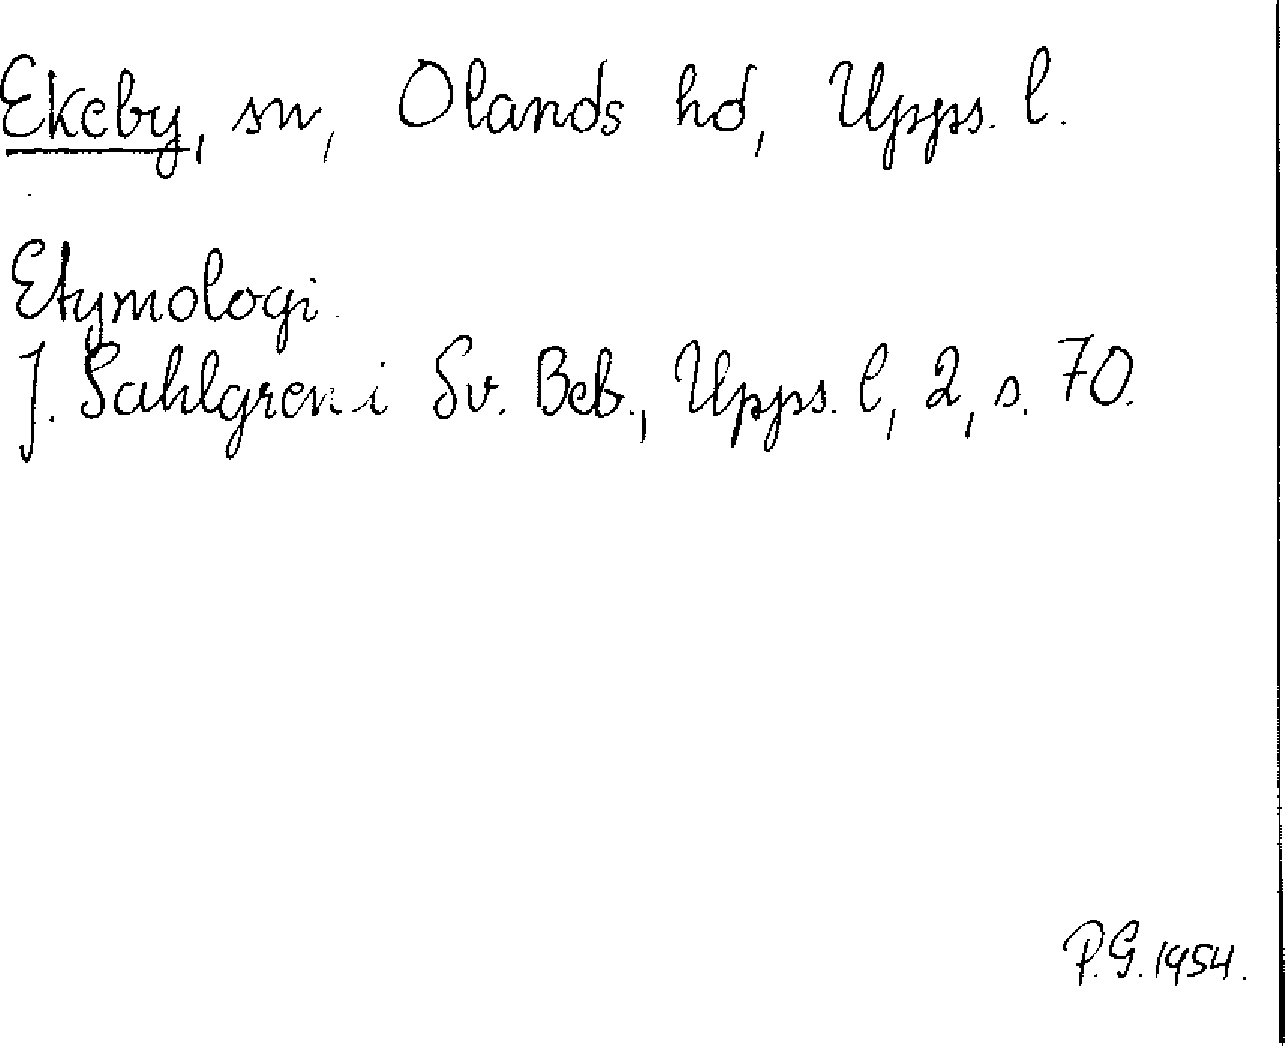 Ekeby, sn, Olands hd, Upps. l.
Etymologi.
J. Sahlgren i Sv. Beb., Upps. l, 2, s. 70.
P.G. 1954.